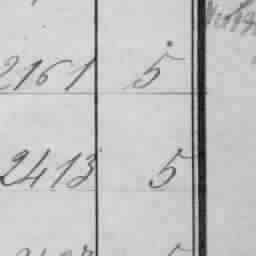 2161 5
2413 5